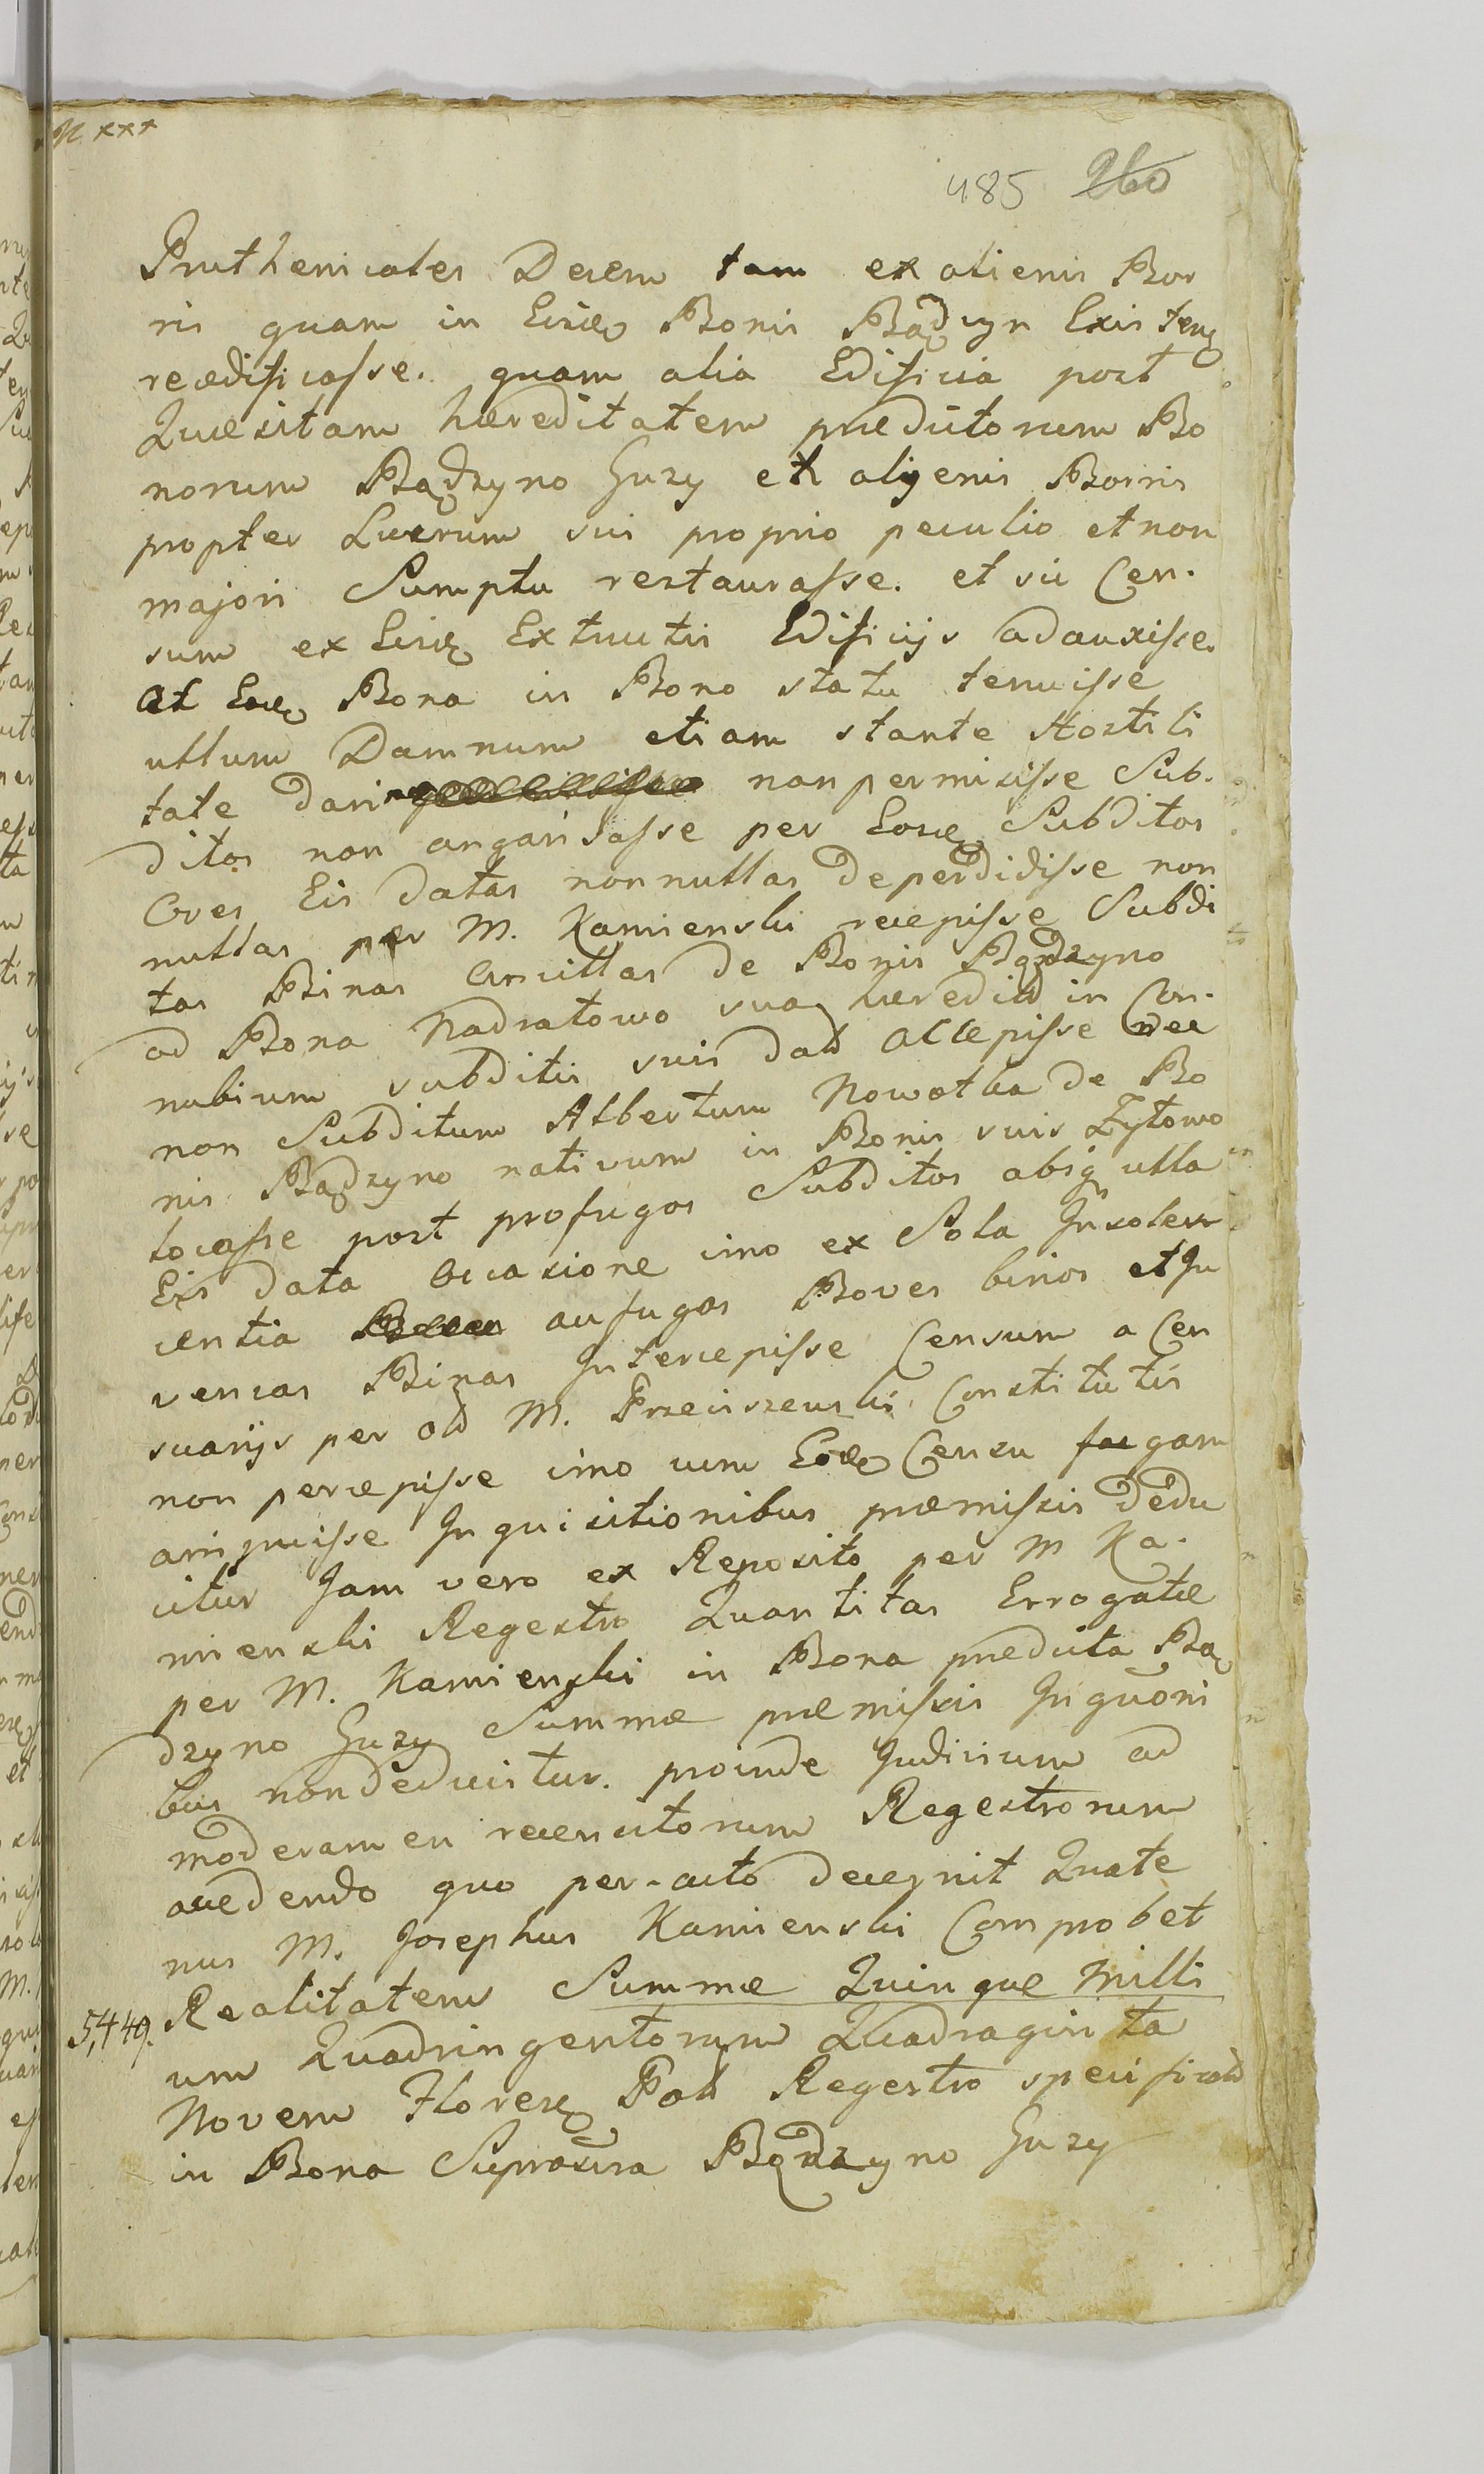 N xxx
485 260
Pruthenicales Decem tam ex alienis Bor
ris quam in Eisdę Bonis Bądzyn Existenę
reædificasse. quam alia Edificia post
Quæsitam hæreditatem prædictorum Bo
norum Bądzyno Guzy ex aligenis Borris
propter Lucrum sui proprio peculio et non
majori Sumptu restaurasse. et sic Cen.
sum ex Eisdę Extructis Edificijs adauxisse.
At Eadę Bona in Bono statu tenuisse
ullum Damnum etiam stante Hostili
tate dari non permisisse Sub.
ditos non angarisasse per Eosdę Subditos
Oves Eis datas nonnullas deperdidisse non
nullas per M. Kamienski recepisse Subdi
tas Binas Ancillas de Bonis Bądzyno
ad Bona Nadratowo sua hæredita in Con.
nubium subditis suis dato Accepisse nec
non Subditum Albertum Nowotka de Bo
nis Bądzyno nativum in Bonis suis Zytowo
locasse post profugos Subditos absq ulla
Eis data Occasione imo ex Sola Insoles
centia aufugos Boves binos et Ju
vencas Binas Intercepisse Censum a Cen
suarijs per olim M. Przeciszewski Constitutis
non percepisse imo cum Eodę Censu fugam
arripuisse Inquisitionibus præmissis dedu
citur Jam vero ex Reposito per M Ka.
mienski Regestro Quantitas Errogatæ
per M. Kamienski in Bona prædicta Bą
dzyno Guzy Summæ præmissis Inquōni
bus non deducitur. proinde Judicium ad
moderamen recensitorum Regestrorum
accedendo quo per-acto decernit Quate
nus M. Josephus Kamienski Comprobet
5,449. Realitatem Summæ Quinque Milli
um Quadringentorum Quadraginta
Novem Florenę Pol Regestro specificato
in Bona Supradicta Bądzyno Guzy